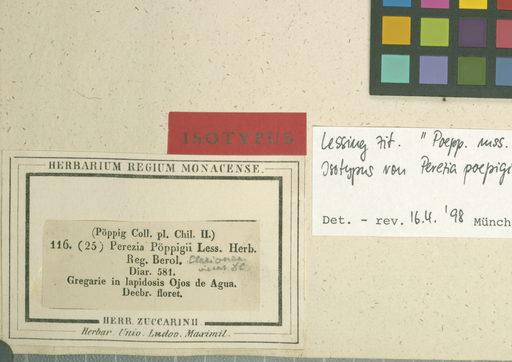 ISOTYPUS
Lessing zit. "Poepp. mss.
Isotypus von Perezia poepigi
Det. - rev. 16.4. '98 Münch
HERBARIUM REGIUM MONACENSE.
(Pöppig Coll. pl. Chil. II.)
116. (25) Perezia Pöppigii Less. Herb.
Reg. Berol. Clarionea
DC.
Diar. 581.
Gregarie in lapidosis Ojos de Agua.
Decbr. floret.
HERB. ZUCCARINII
Herbar. Univ. Ludov. Maximil.